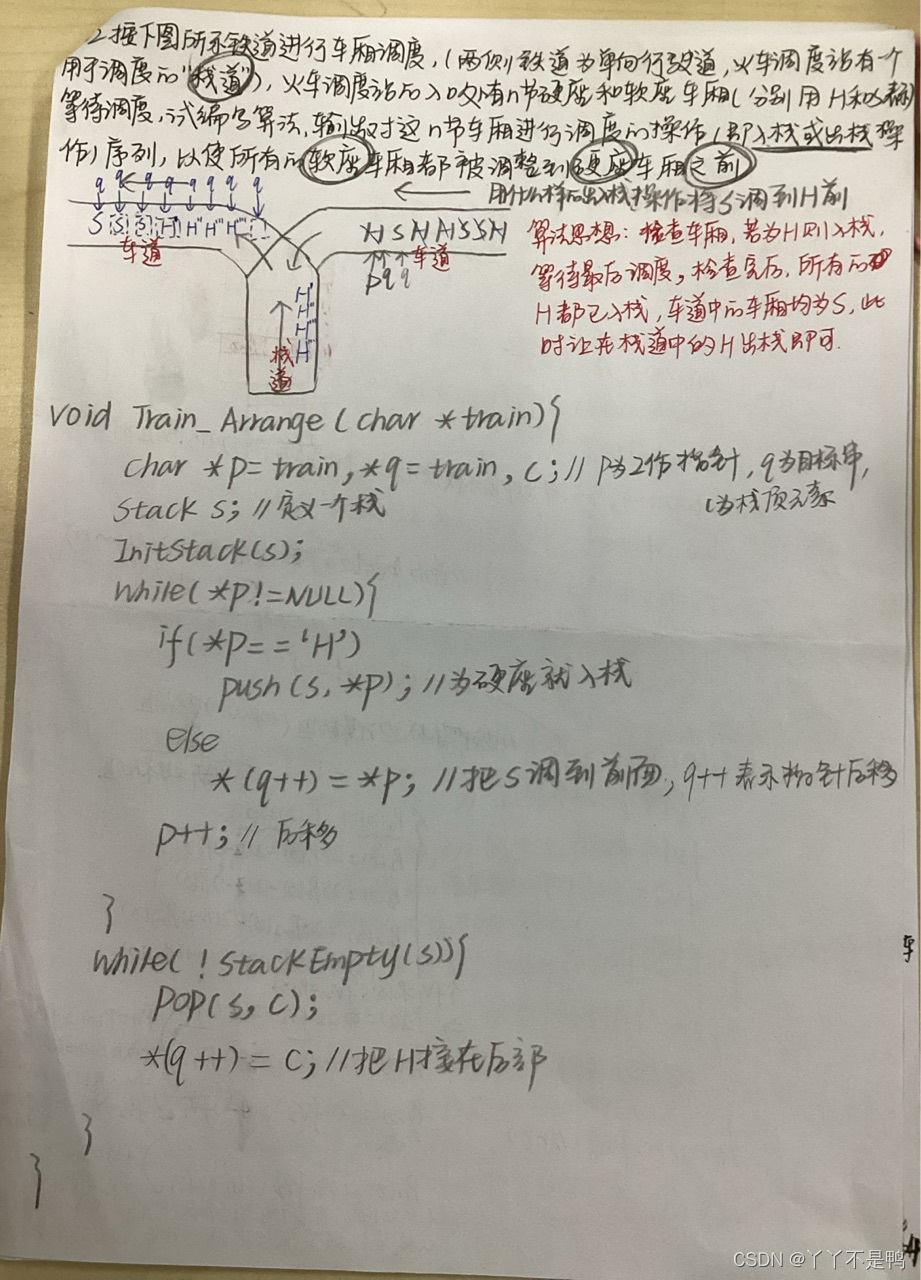 2.按下图所示铁道进行车厢调度,(两侧铁道为单向行驶道,火车调度站有一个
用于调度的"栈道"),火车调度站的入口处有n节硬座和软座车厢(分别用H和S表示)
等待调度,试编写算法,输出对这n节车厢进行调度的操作(即入栈或出栈操
作)序列,以使所有的软座车厢都被调整到硬座车厢之前
用什么样的出入栈操作将S调到H前
q q q q q q q q
S S S H H'' H''' H''''
车道
H S H H S S H
p q q 车道
H'
H''
H'''
H
栈道
算法思想:检查车厢,若为H则入栈,
等待最后调度,检查完后,所有的
H都已入栈,车道中的车厢均为S,此
时让在栈道中的H出栈即可.
void Train_Arrange(char *train){
char *p=train,*q=train,c;//p为工作指针,q为目标串,
c为栈顶元素
Stack s;//定义一个栈
InitStack(s);
while(*p!=NULL){
if(*p=='H')
push(s,*p);//为硬座就入栈
else
*(q++)=*p;//把S调到前面,q++表示指针后移
p++;//后移
}
while(!StackEmpty(s)){
POP(s,c);
*(q++)=c;//把H接在后部
}
}
车
CSDN @丫丫不是鸭